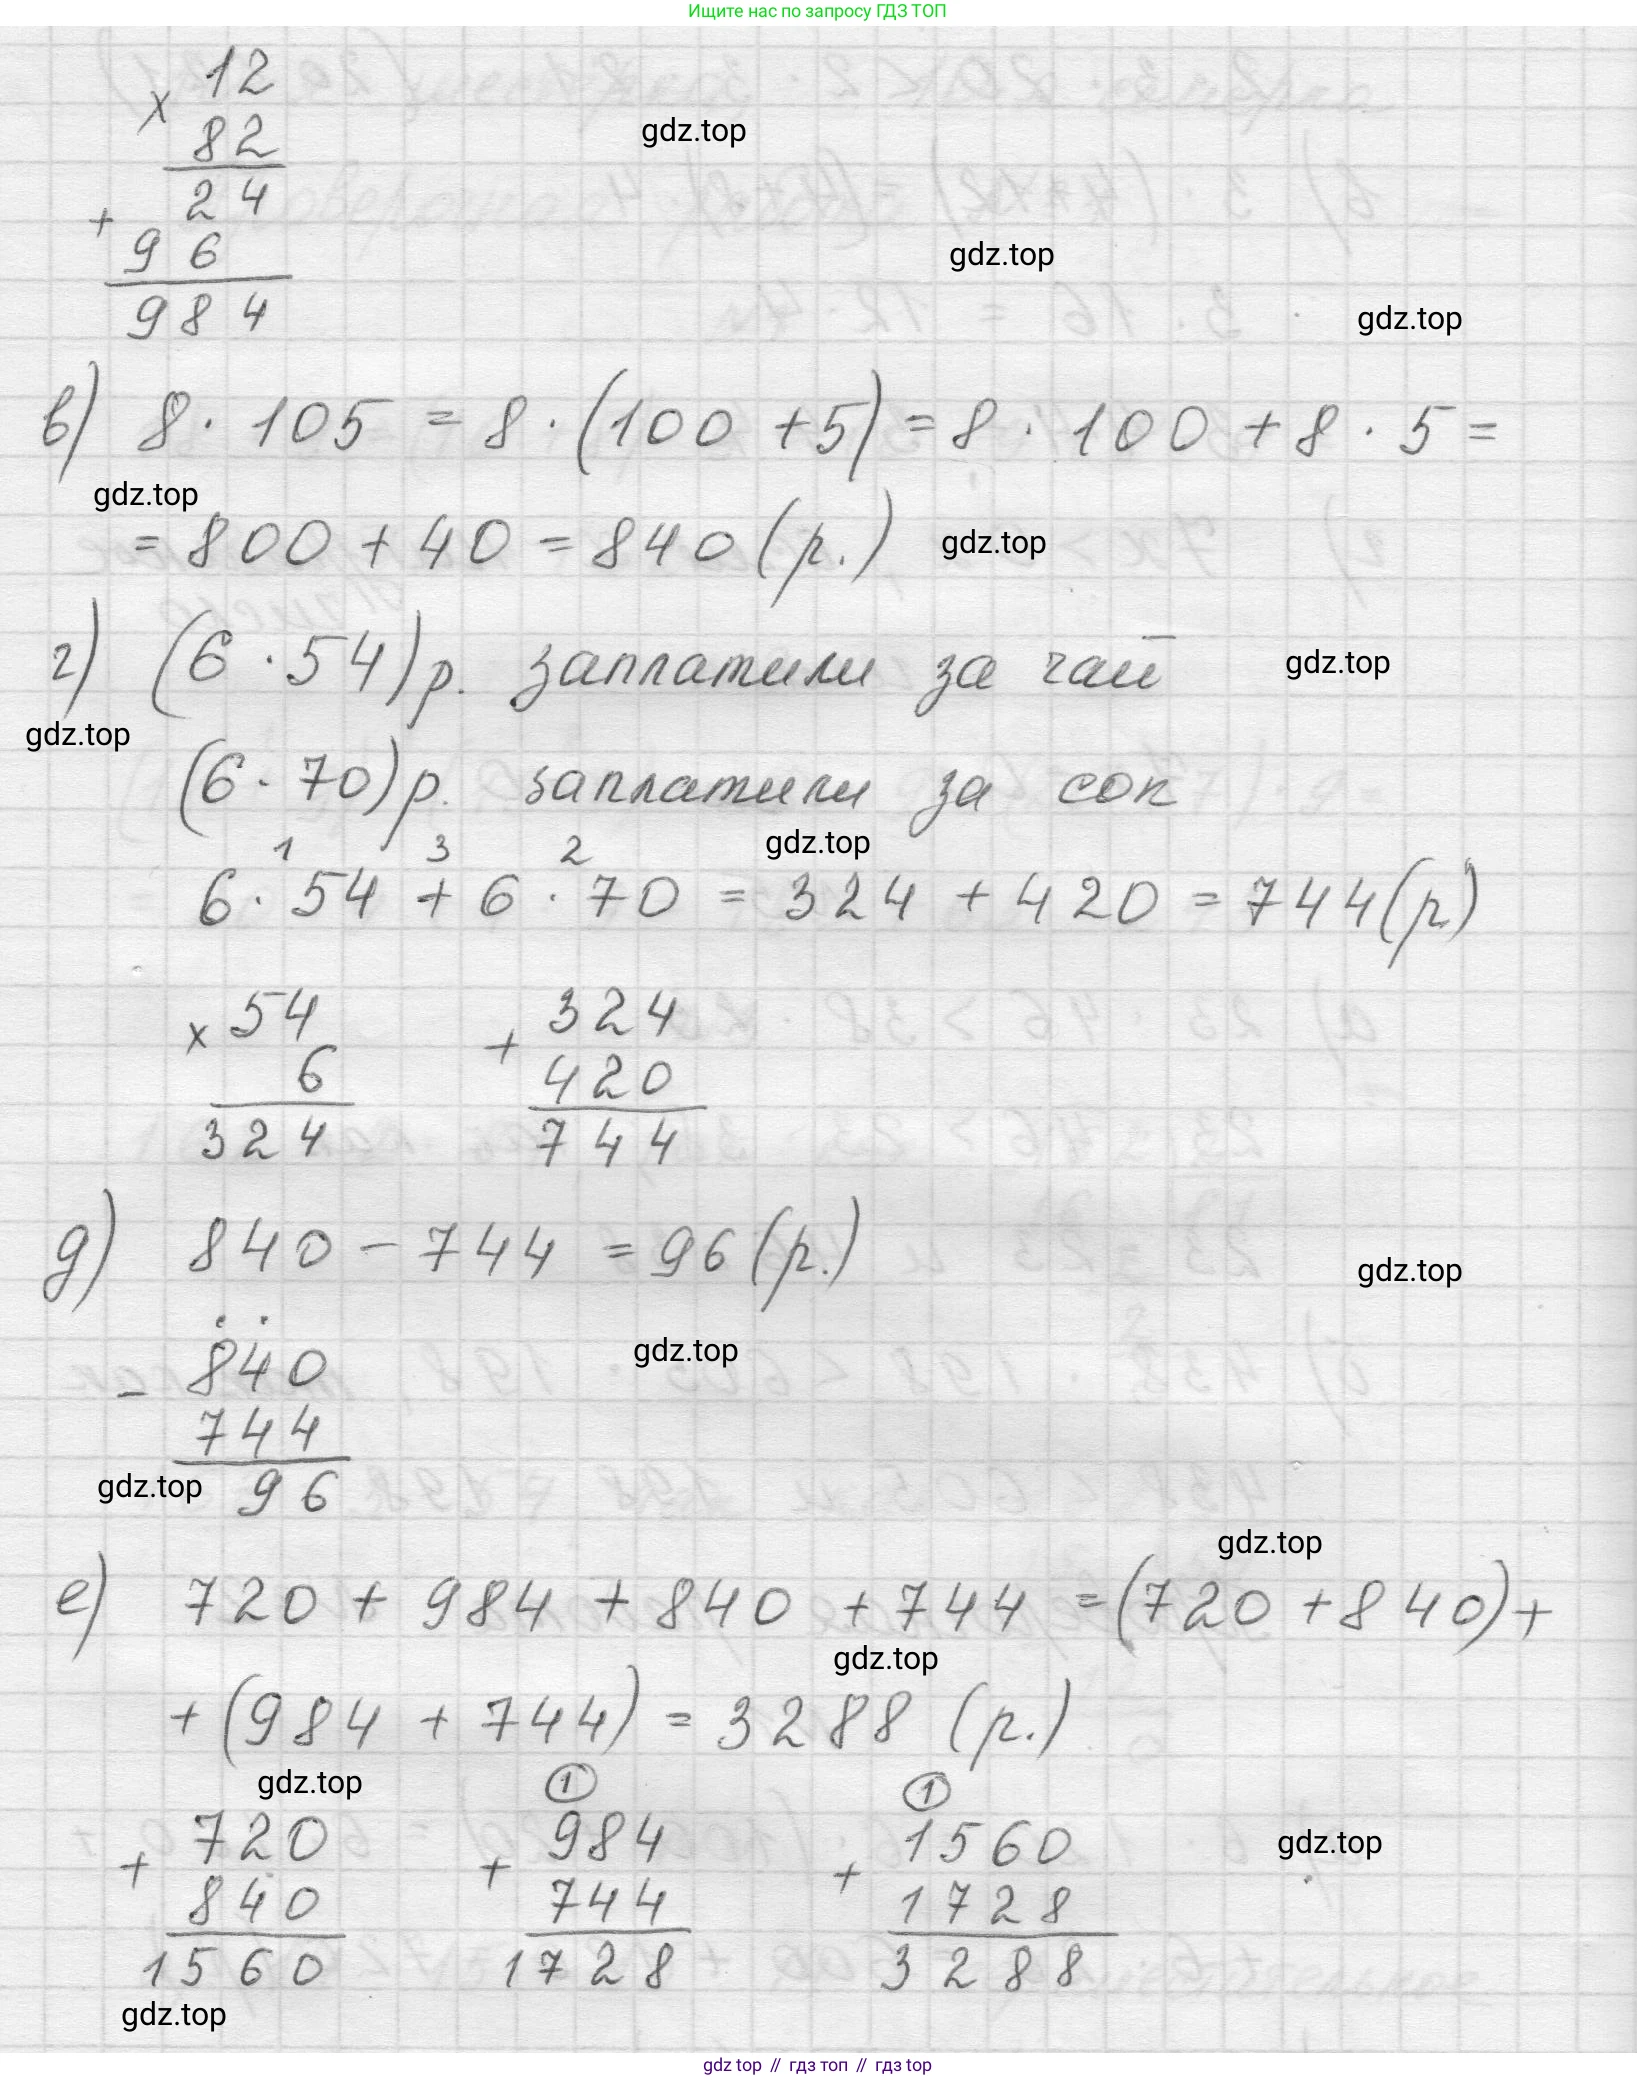 Ищите нас по запросу ГДЗ ТОП
12
×
82
gdz.top
24
+
96
gdz.top
984
gdz.top
в) 8 · 105 = 8 · (100 + 5) = 8 · 100 + 8 · 5 =
gdz.top
= 800 + 40 = 840 (р.)
gdz.top
г) (6 · 54) р. заплатили за чай
gdz.top
gdz.top
(6 · 70) р. заплатили за сок
gdz.top
1 3 2
6 · 54 + 6 · 70 = 324 + 420 = 744 (р.)
× 54
6
324
+ 324
420
744
д) 840 - 744 = 96 (р.)
gdz.top
gdz.top
- 840
744
gdz.top
96
gdz.top
е) 720 + 984 + 840 + 744 = (720 + 840) +
gdz.top
+ (984 + 744) = 3288 (р.)
gdz.top
+ 720
840
1560
1
+ 984
744
1728
1
+ 1560
1728
3288
gdz.top
gdz.top
gdz.top // гдз топ // гдз top